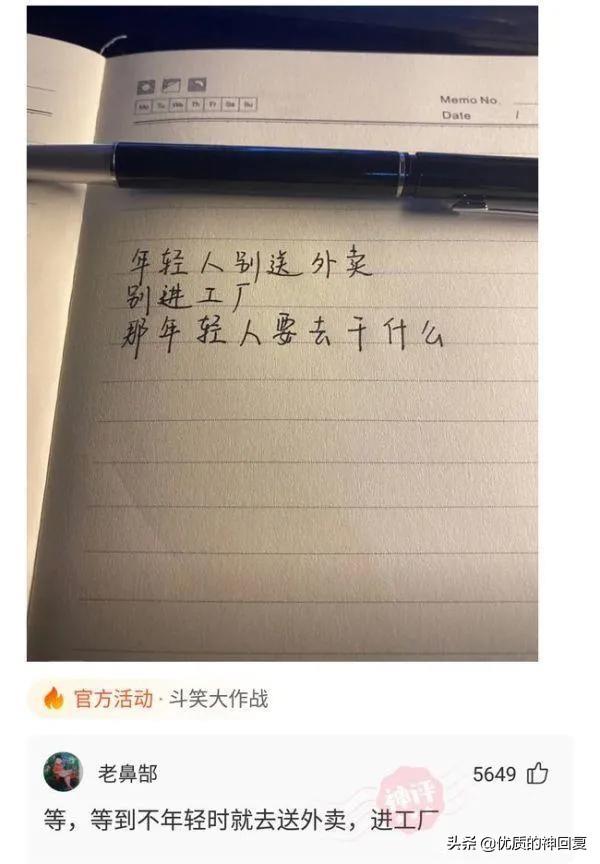 Mo Tu We Th Fr Sa Su
Memo No.
Date /
年轻人别送外卖
别进工厂
那年轻人要去干什么
官方活动·斗笑大作战
老鼻郜
5649
神评
等，等到不年轻时就去送外卖，进工厂
头条 @优质的神回复